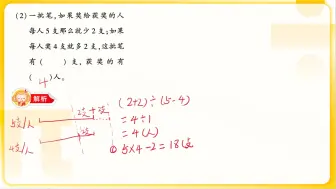 (2)一批笔,如果奖给获奖的人
每人5支那么就少2支;如果
每人奖4支就多2支,这批笔
有(  )支,获奖的有
( 4 )人。
解析
2支+2支
5支/人
2支
4支/人
(2+2)÷(5-4)
=4÷1
=4(人)
5×4-2=18(支